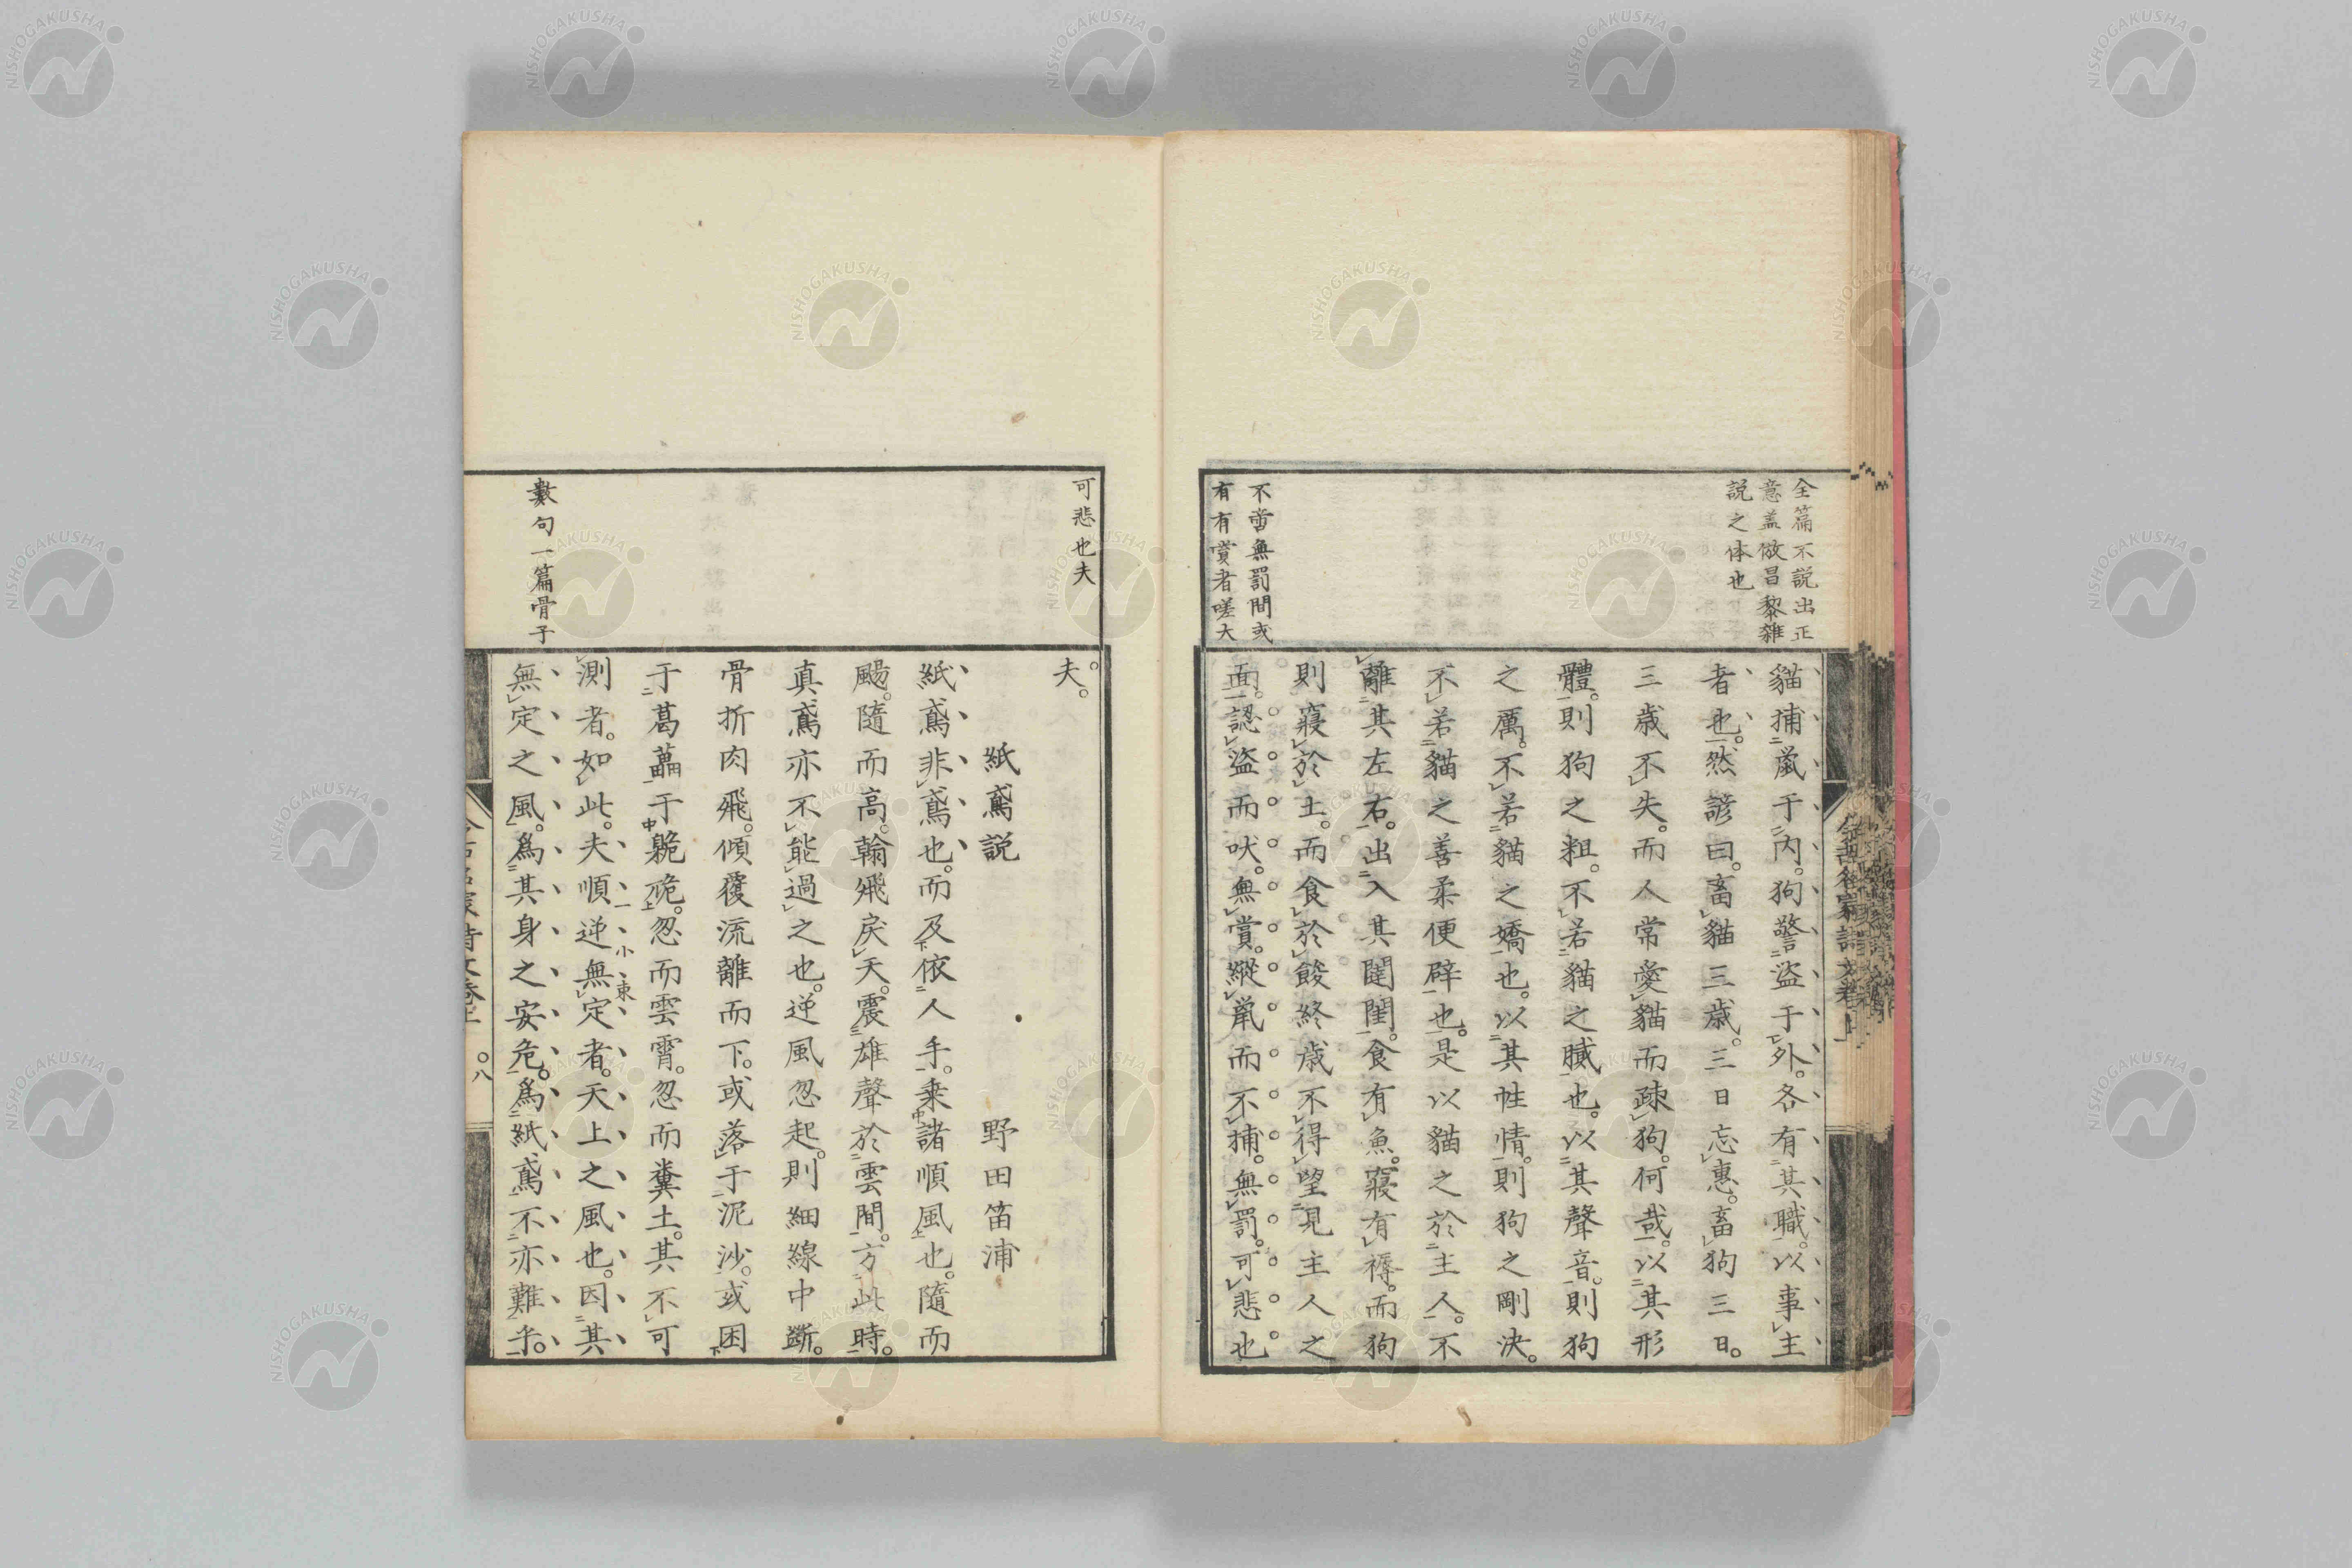 全篇不説出正
意盖倣昌黎雜
説之体也
不啻無罰間或
有有賞者嗟大
貓捕鼠于内。狗警盗于外。各有其職。以事主
者也。然諺曰。畜貓三歳。三日忘惠。畜狗三日。
三歳不失。而人常愛貓而疎狗。何哉。以其形
體。則狗之粗。不若貓之膩也。以其聲音。則狗
之厲。不若貓之嬌也。以其性情。則狗之剛決。
不若貓之善柔便辟也。是以貓之於主人。不
離其左右。出入其闥閨。食有魚。寢有褥。而狗
則寢於土。而食於餕。終歳不得望見主人之
面。認盗而吠。無賞。縱鼠而不捕。無罰。可悲也
可悲也夫
數句一篇骨子
夫。
紙鳶説 野田笛浦
紙鳶非鳶也。而及依人手。乗諸順風也。隨而
颺。隨而高。翰飛戾天。震雄聲於雲間。方此時。
真鳶亦不能過之也。逆風忽起。則細線中斷。
骨折肉飛。傾覆流離而下。或落于泥沙。或困
于葛藟于臲卼。忽而雲霄。忽而糞土。其不可
測者。如此。夫順逆無定者。天上之風也。因其
無定之風。爲其身之安危。爲紙鳶不亦難乎。
一小東
八
NISHOGAKUSHA